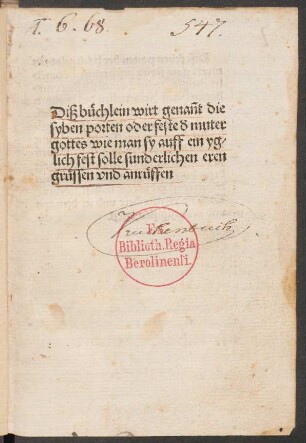 T. 6. 68. 547.
Diß büchlein wirt genañt die
syben porten oder feste d̕ muter
gottes wie man sy auff ein yg⸗
lich fest solle sunderlichen eren
grüssen vnd anrüffen
Ex
Biblioth. Regia
Berolinensi.